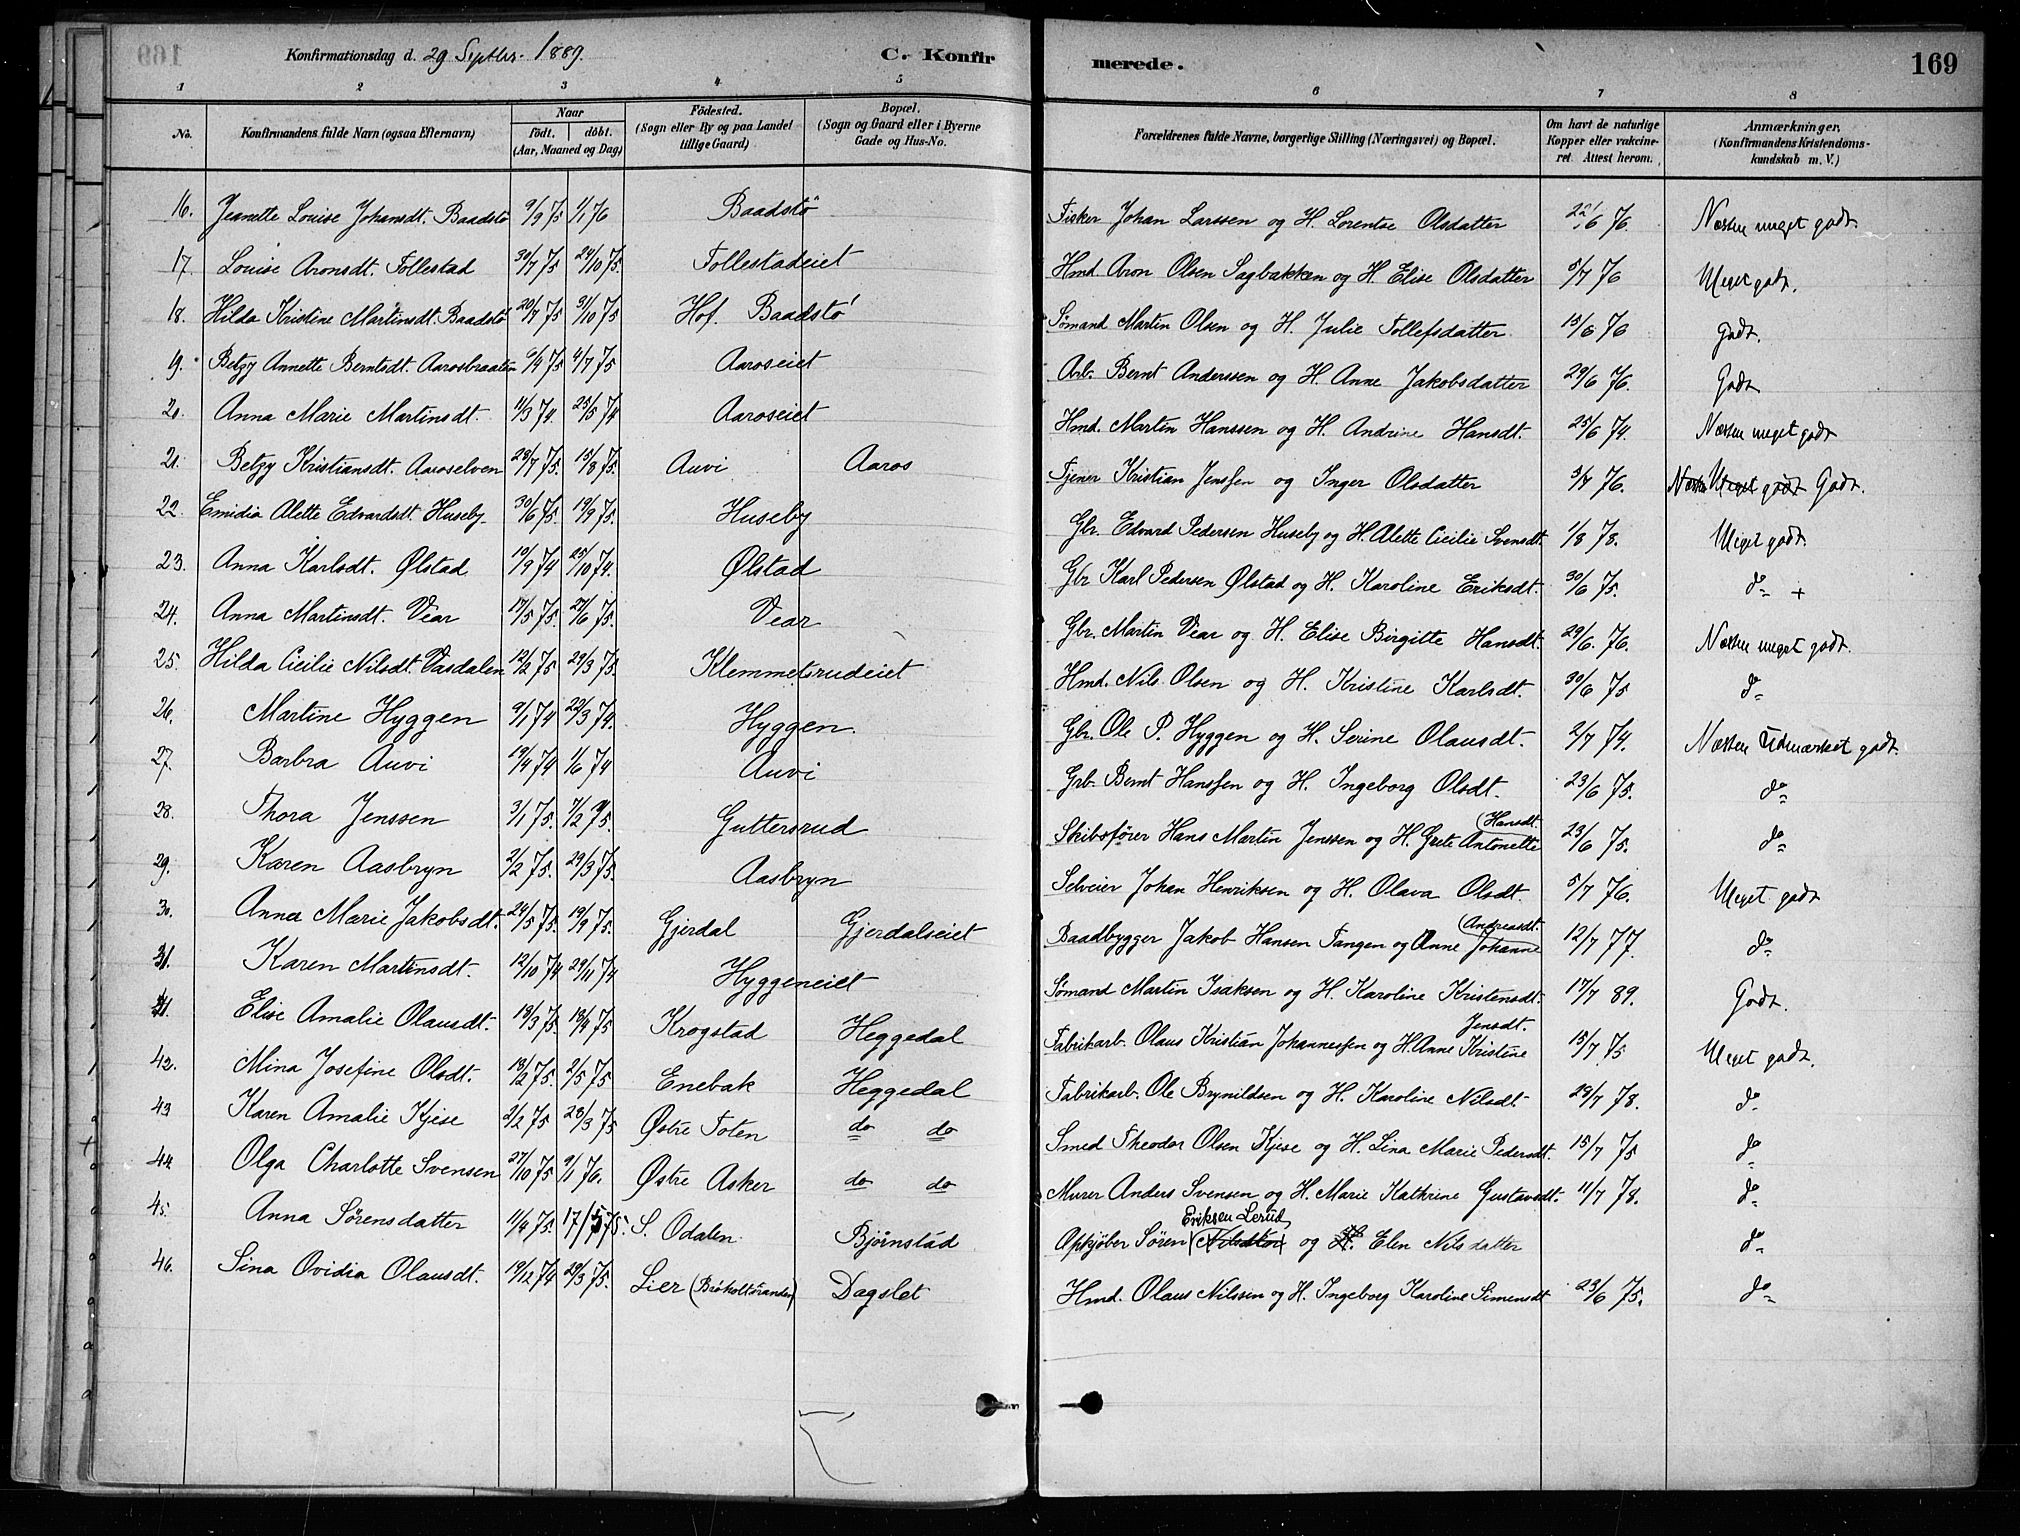 Konfirmationsdag d. 29 Septbr. 1889. C. Konfirmerede. 169
1 2 3 4 5 6 7 8
No. Konfirmandens fulde Navn (ogsaa Efternavn) Naar födt. döbt. (Aar, Maaned og Dag) Födested. (Sogn eller By og paa Landet tillige Gaard) Bopæl. (Sogn og Gaard eller i Byerne Gade og Hus-No. Forældrenes fulde Navne, borgerlige Stilling (Næringsvei) og Bopæl. Om havt de naturlige Kopper eller vakcineret. Attest herom. Anmærkninger, (Konfirmandens Kristendomskundskab m. V.)
16. Jeanette Louise Johansdt. Baadstø 9/9 75 1/1 76 Baadstø Fisker Johan Larssen og H. Lorentse Olsdatter 22/6 76. Næsten meget godt.
17. Louise Aronsdt. Tollestad 30/7 75 24/10 75. Follestadeiet Hmd. Aron Olsen Sagbakken og H. Elise Olsdatter 5/7 76 Meget godt.
18. Hilda Kristine Martinsdt. Baadstø 20/7 75 31/10 75 Hof. Baadstø Sømand Martin Olsen og H. Julie Tollefsdatter 15/6 76 Godt.
19. Betzy Annette Berntsdt. Aarosbraaten 6/4 75 4/7 75 Aaroseiet Arb. Bernt Anderssen og H. Anne Jakobsdatter 29/6 76. Godt
20. Anna Marie Martinsdt. 11/3 74 25/5 74 Aaroseiet Hmd. Martin Hanssen og H. Andrine Hansdt. 25/6 74. Næsten meget godt
21. Betzy Kristiansdt. Aaroselven 28/7 75. 15/8 75. Auvi Aaros Tjener Kristian Jenssen og Inger Olsdatter 3/7 76. Næsten Meget godt Godt.
22. Emidia Alette Edvardsdt. Huseby 30/6 75. 19/9 75. Huseby Gbr. Edvard Pedersen Huseby og H. Alette Cicilie Svensdt. 1/8 78. Meget godt.
23. Anna Karlsdt. Ølstad 19/9 74 25/10 74. Ølstad Gbr Karl Pedersen Ølstad og H. Karoline Eriksdt. 30/6 75. do +
24. Anna Martinsdt. Vear 17/5 75. 27/6 75. Vear Gbr. Martin Vear og H. Elise Birgitte Hansdt. 29/6. 76. Næsten meget godt.
25. Hilda Cicilie Nilsdt. Vasdalen 12/2 75 29/3 75. Klemmetsrudeiet Hmd. Nils Olsen og H. Kristine Karlsdt. 30/6 75 do
26. Martine Hyggen 9/1 74 22/3 74. Hyggen. Gbr. Ole P. Hyggen og H. Serine Olausdt. 2/7 74. Næsten Udmærket godt.
27. Barbra Auvi 19/4 74 1/6 74 Auvi Grb. Bernt Hanssen og H. Ingeborg Olsdt. 23/6 75. do
28. Thora Jenssen 3/1 75. 7/2 75. Guttersrud Skibsfører Hans Martin Jenssen og H. Grete Antonette Hansdt. 23/6 75. do
29. Karen Aasbryn 2/2 75. 29/3 75. Aasbryn Selveier Johan Henriksen og H. Olava Olsdt. 5/7 76. Meget godt
30. Anna Marie Jakobsdt. 24/5 75. 19/9 75. Gjerdal Gjerdalseiet Baadbygger Jakob Hansen Tangen og Anne Johanne Andreasdt. 12/7 77. do
31. Karen Martinsdt. 12/10 74 29/11 74 Hyggeneiet Sømand Martin Isaksen og H. Karoline Kristensdt. 17/7 89. Godt.
41. Elise Amalie Olausdt. 18/3 75. 18/4 75 Krogstad Heggedal Fabrikarb. Olaus Kristian Johannessen og H. Anne Kristine Jensdt. 15/7. 75 Meget godt.
42. Mina Josefine Olsdt. 13/2 75. 2/5 75 Enebak Heggedal Fabrikarb. Ole Brynildsen og H. Karoline Nilsdt. 29/7 78. do
43 Karen Amalie Kjise 2/2 75 28/3 75 Østre Toten do do Smed Theodor Olsen Kjise og H. Lina Marie Pedersdt. 15/7 75 do
44 Olga Charlotte Svensen 27/10 75 9/1 76. Østre Asker do do Murer Anders Svensen og H. Marie Kathrine Gustavsdt. 11/7 78. do
45. Anna Sørensdatter 11/4 75. 17/5 75. S. Odalen Bjørnstad Opkjøber Søren Eriksen Lerud og H. Elen Nilsdatter do
46. Sina Ovidia Olausdt. 19/12 74 29/3 75. Lier Dagslet Hmd. Olaus Nilssen og H. Ingeborg Karoline Simensdt 23/6 75. do